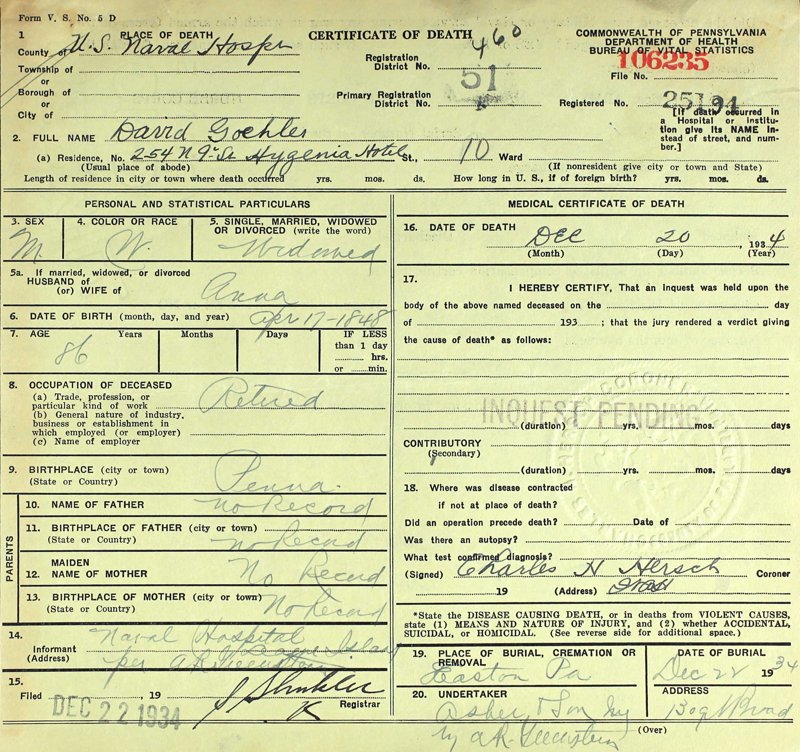 Form V. S. No. 5 D
1 PLACE OF DEATH
County of U.S. Naval Hospi
Township of
or
Borough of
or
City of
CERTIFICATE OF DEATH
Registration District No. 460
51
Primary Registration District No.
COMMONWEALTH OF PENNSYLVANIA
DEPARTMENT OF HEALTH
BUREAU OF VITAL STATISTICS
106235
File No.
Registered No. 25194
[If death occurred in a Hospital or institution give its NAME instead of street, and number.]
2. FULL NAME David Goehler
(a) Residence, No. 254 N 9th St Hygenia Hotel St., 10 Ward
(Usual place of abode) (If nonresident give city or town and State)
Length of residence in city or town where death occurred yrs. mos. ds. How long in U. S., if of foreign birth? yrs. mos. ds.
PERSONAL AND STATISTICAL PARTICULARS
3. SEX
M.
4. COLOR OR RACE
W.
5. SINGLE, MARRIED, WIDOWED OR DIVORCED (write the word)
Widowed
5a. If married, widowed, or divorced
HUSBAND of
(or) WIFE of Anna
6. DATE OF BIRTH (month, day, and year) Apr 17-1848
7. AGE Years Months Days IF LESS than 1 day
86
hrs.
or min.
8. OCCUPATION OF DECEASED
(a) Trade, profession, or particular kind of work Retired
(b) General nature of industry, business or establishment in which employed (or employer)
(c) Name of employer
9. BIRTHPLACE (city or town)
(State or Country) Penna.
PARENTS
10. NAME OF FATHER No Record
11. BIRTHPLACE OF FATHER (city or town)
(State or Country) No Record
12. MAIDEN NAME OF MOTHER No Record
13. BIRTHPLACE OF MOTHER (city or town)
(State or Country) No Record
14. Informant Naval Hospital
(Address) League Island
per
15. Filed , 19
DEC 22 1934
Registrar
MEDICAL CERTIFICATE OF DEATH
16. DATE OF DEATH
DEC 20, 1934
(Month) (Day) (Year)
17. I HEREBY CERTIFY, That an inquest was held upon the
body of the above named deceased on the day
of 193 ; that the jury rendered a verdict giving
the cause of death* as follows:
INQUEST PENDING
(duration) yrs. mos. days
CONTRIBUTORY
(Secondary)
(duration) yrs. mos. days
18. Where was disease contracted
if not at place of death?
Did an operation precede death? Date of
Was there an autopsy?
What test confirmed diagnosis?
(Signed) Charles H Hersch Coroner
19 (Address)
*State the DISEASE CAUSING DEATH, or in deaths from VIOLENT CAUSES, state (1) MEANS AND NATURE OF INJURY, and (2) whether ACCIDENTAL, SUICIDAL, or HOMICIDAL. (See reverse side for additional space.)
19. PLACE OF BURIAL, CREMATION OR REMOVAL
Easton Pa
DATE OF BURIAL
Dec 22 1934
20. UNDERTAKER
Asher & Son
ADDRESS
1309 N Broad
(Over)